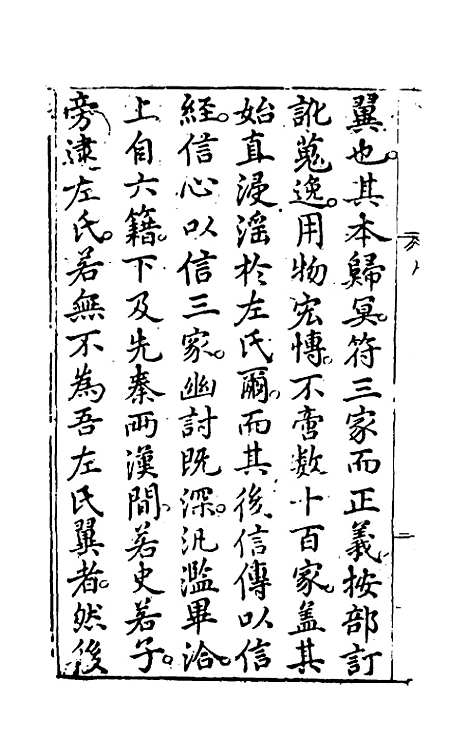 翼也。其本歸冥。符三家而正義按部訂
訛蒐逸。用物宏博。不啻數十百家。盖其
始直浸滛於左氏爾。而其後信傳以信
經。信心以信三家。幽討既深。汎濫畢洽。
上自六籍。下及先秦兩漢間。若史若子。
旁逮左氏。若無不為吾左氏翼者。然後